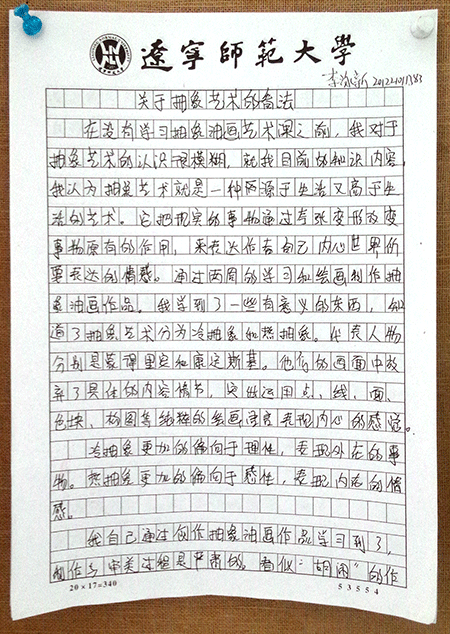 遼寧師範大學
20122101383
关于抽象艺术的看法
在没有学习抽象油画艺术课之前，我对于
抽象艺术的认识很模糊，就我目前的知识内容，
我认为抽象艺术就是一种既源于生活又高于生
活的艺术。它把现实的事物通过夸张变形改变
事物原有的作用，来表达作者自己内心世界所
要表达的情感。通过两周的学习和绘画制作抽
象油画作品。我学到了一些有意义的东西，知
道了抽象艺术分为冷抽象和热抽象。代表人物
分别是蒙得里安和康定斯基。他们的画面中放
弃了具体的内容情节，运用点、线、面、
色块、构图等纯粹的绘画语言表现内心的感觉。
冷抽象更加的偏向于理性，表现外在的事
物。热抽象更加的偏向于感性，表现内在的情
感。
我自己通过创作抽象油画作品学习到了，
制作与审美过程是严肃的。看似“胡闹”的作
20×17=340
53554